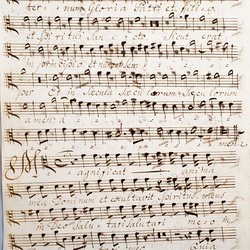 ter: num Gloria Patri et Filio
et Spiritui San cto Sicut erat
in principio et nunc et sem
per Et in Sæcula Sæculorum Sæculorum
amen a
men
M agnificat anima
mea Dominum et exultavit Spiritus meus
in Deo Salu tari Salutari meo in
Quia